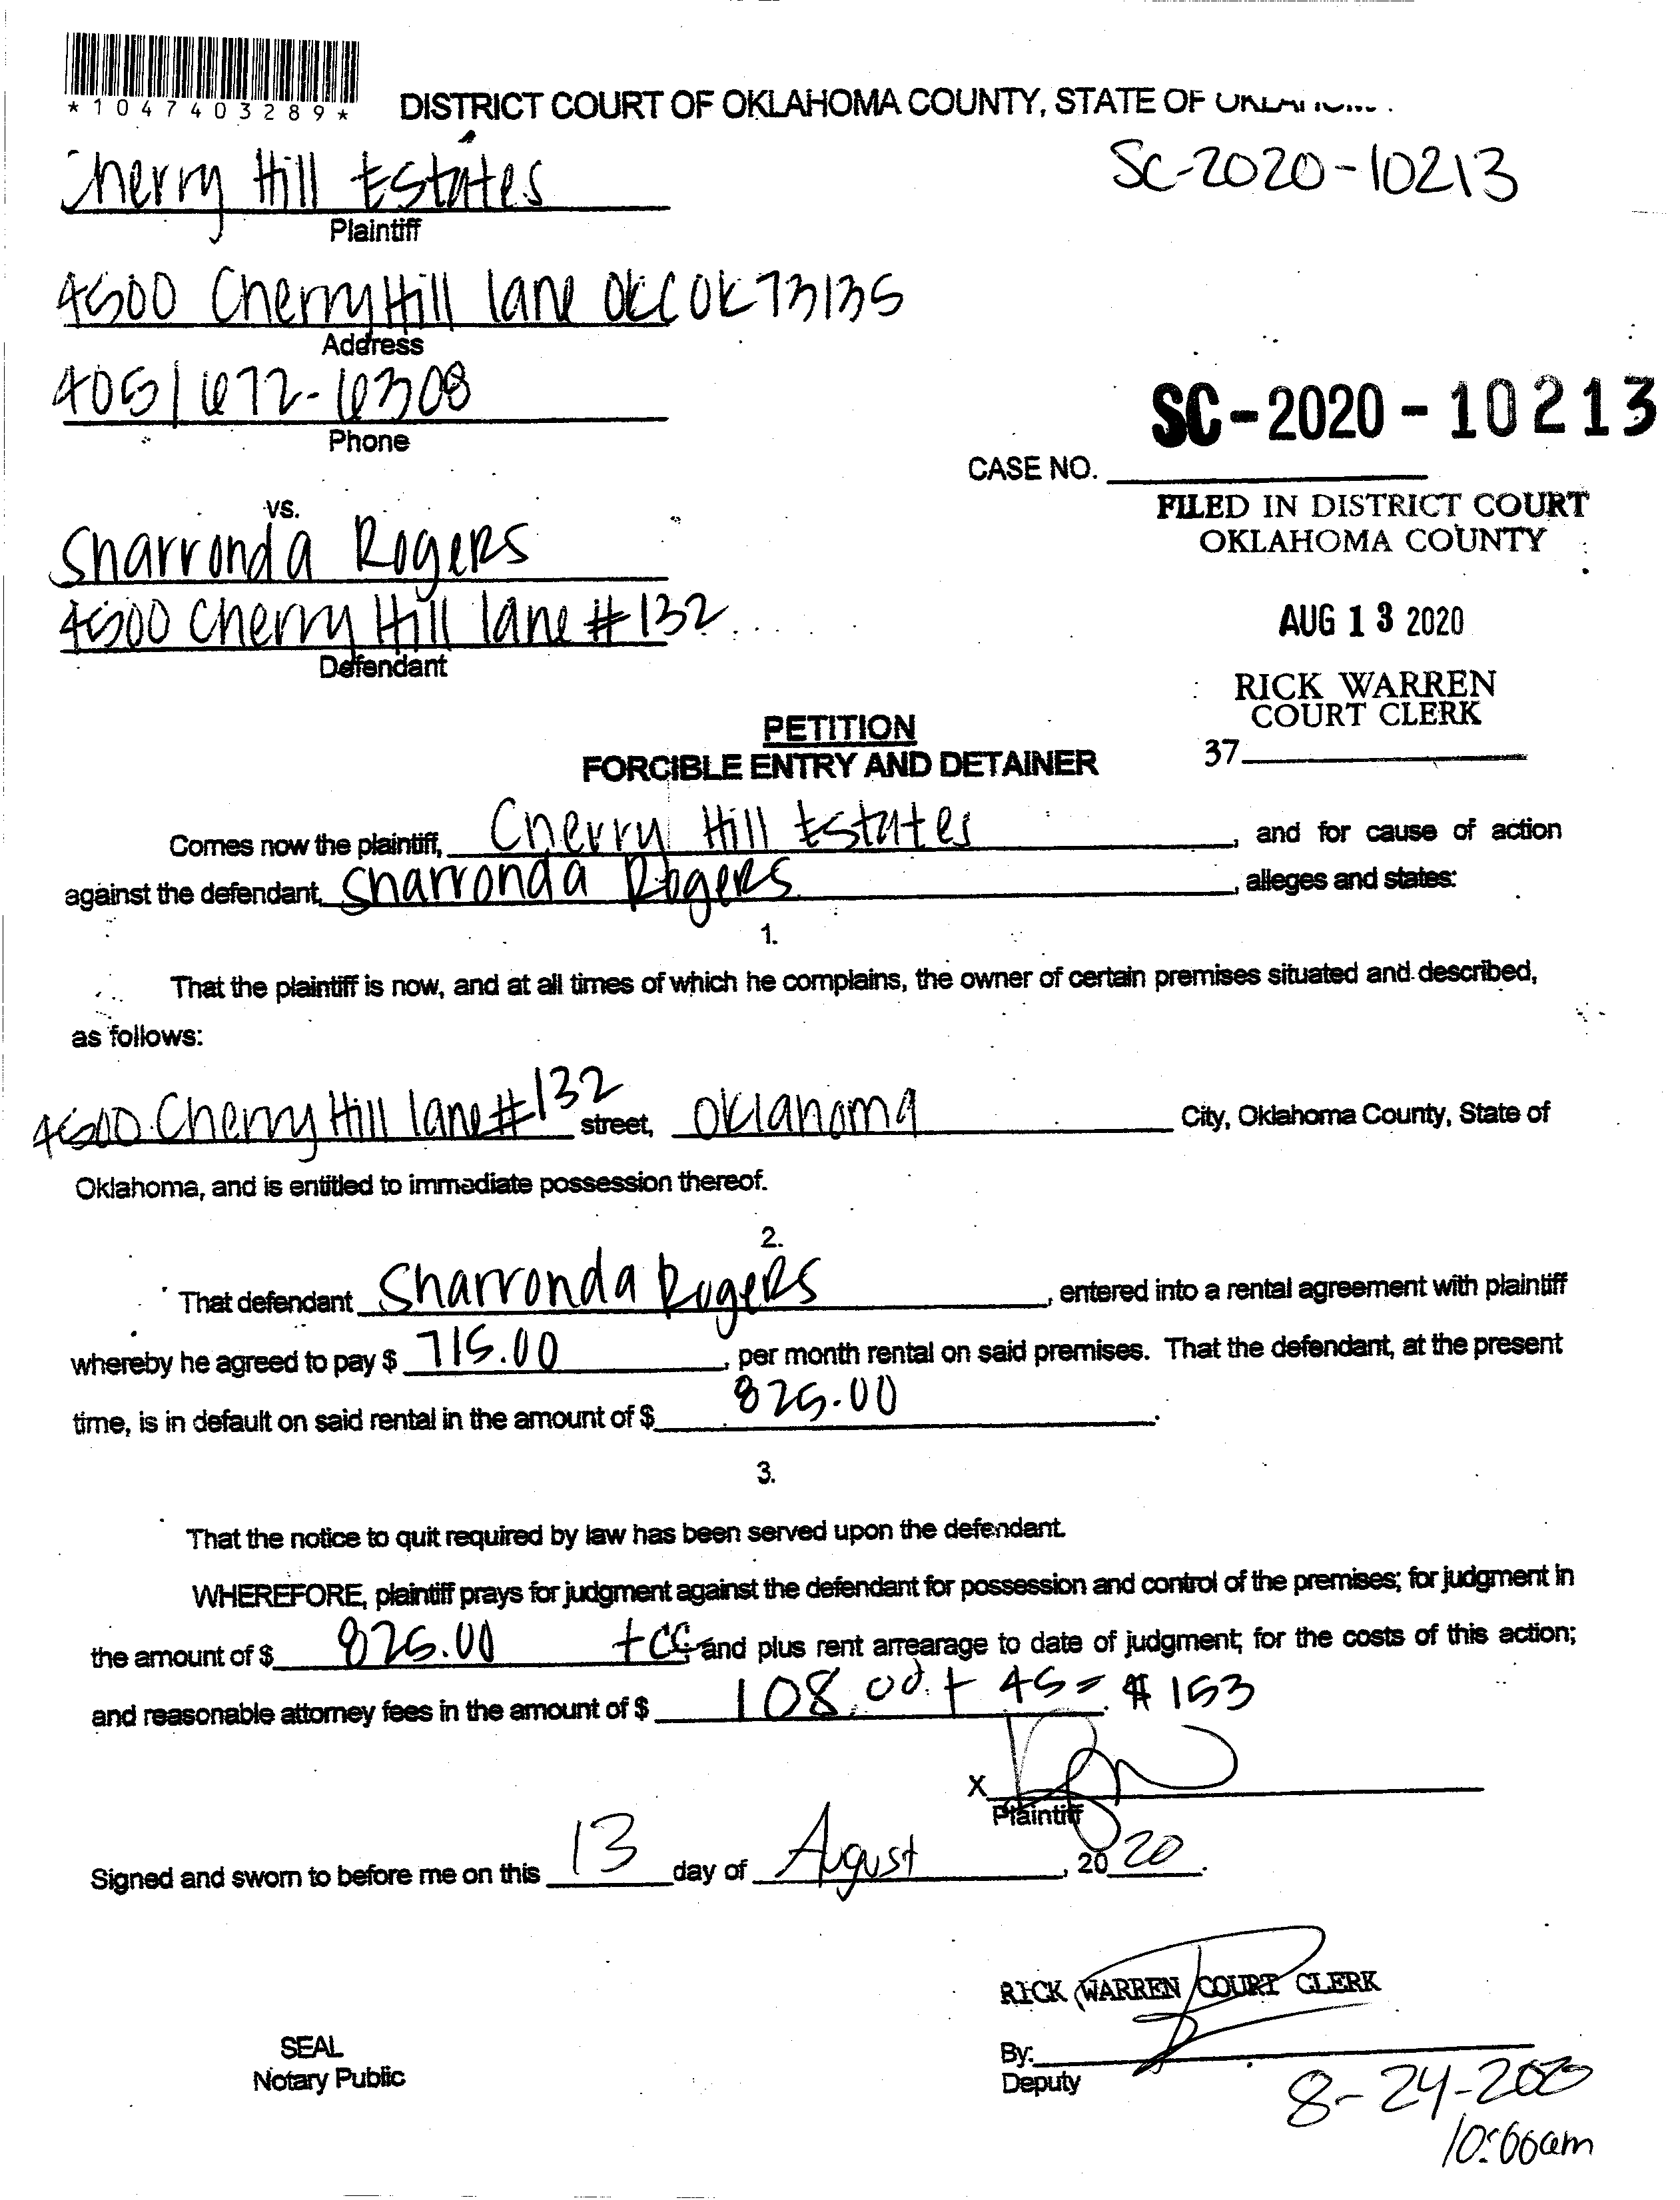 *1047403289*
DISTRICT COURT OF OKLAHOMA COUNTY, STATE OF
Cherry Hill Estates
SC-2020-10213
Plaintiff
4500 Cherry Hill lane OKC OK 73135
Address
405/672-6308
Phone
SC-2020-10213
CASE NO.
vs.
FILED IN DISTRICT COURT
OKLAHOMA COUNTY
Sharronda Rogers
4500 Cherry Hill lane #132
Defendant
AUG 13 2020
RICK WARREN
COURT CLERK
37
PETITION
FORCIBLE ENTRY AND DETAINER
Comes now the plaintiff, Cherry Hill Estates, and for cause of action
against the defendant, Sharronda Rogers, alleges and states:
1.
That the plaintiff is now, and at all times of which he complains, the owner of certain premises situated and described,
as follows:
4500 Cherry Hill lane #132 street, Oklahoma City, Oklahoma County, State of
Oklahoma, and is entitled to immediate possession thereof.
2.
That defendant Sharronda Rogers, entered into a rental agreement with plaintiff
whereby he agreed to pay $ 715.00, per month rental on said premises. That the defendant, at the present
time, is in default on said rental in the amount of $ 825.00.
3.
That the notice to quit required by law has been served upon the defendant.
WHEREFORE, plaintiff prays for judgment against the defendant for possession and control of the premises; for judgment in
the amount of $ 825.00 +CC and plus rent arrearage to date of judgment; for the costs of this action;
and reasonable attorney fees in the amount of $ 108.00 + 45 = $153
X
Plaintiff
Signed and sworn to before me on this 13 day of Agust, 2020.
RICK WARREN COURT CLERK
SEAL
Notary Public
By:
Deputy
8-24-2020
10:00am